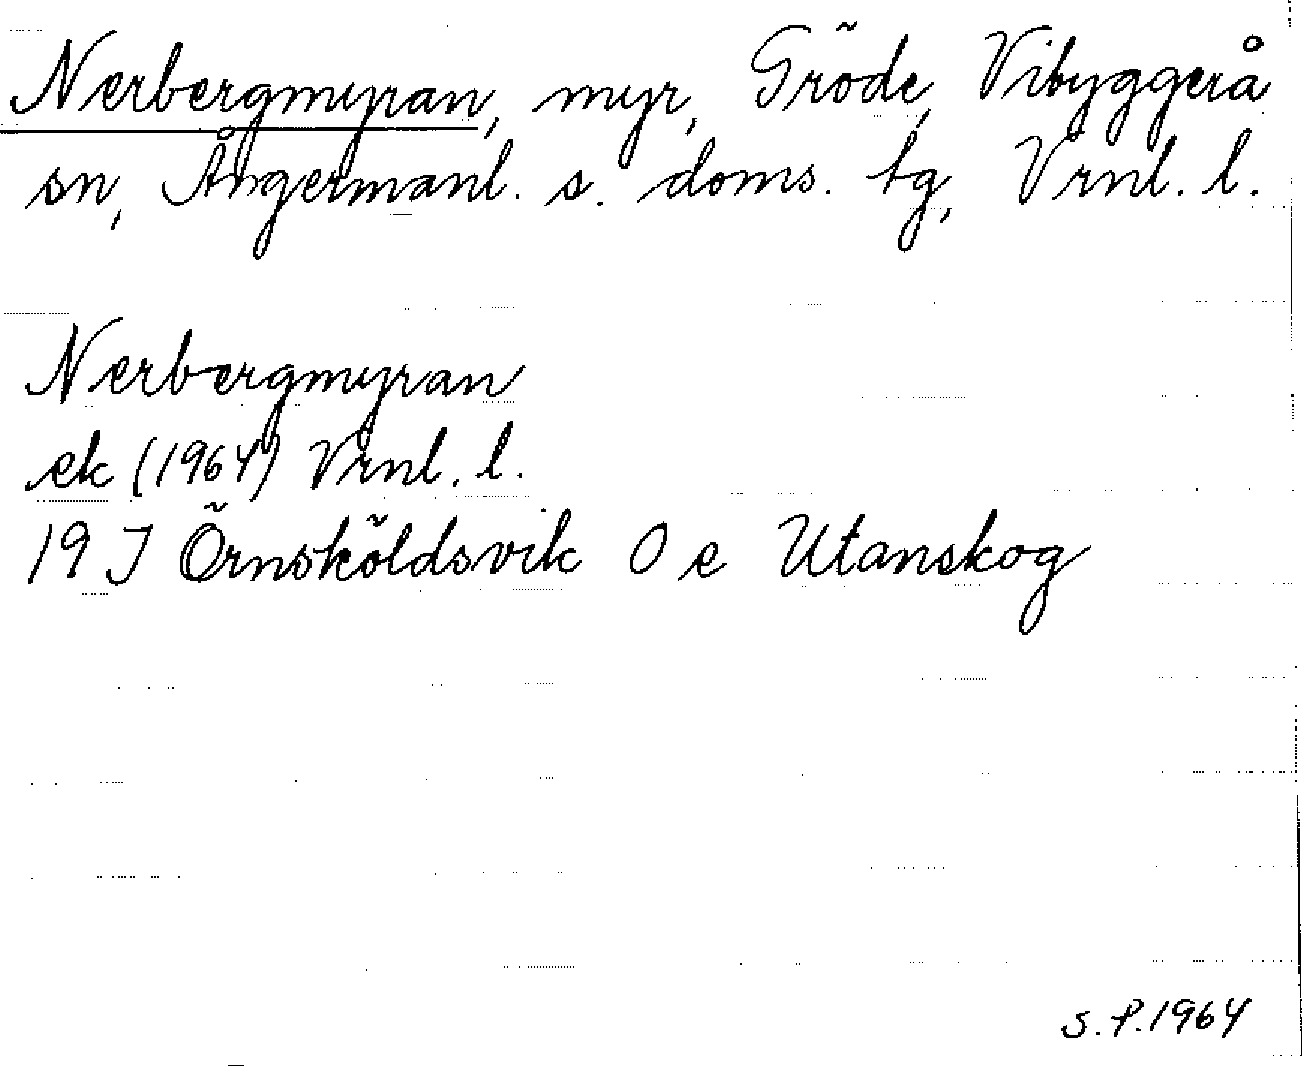 Nerbergmyran, myr, Gröde, Vibyggerå
sn, Ångermanl. s. doms. tg, Vrnl. l.
Nerbergmyran
ek (1964) Vrnl. l.
19 J Örnsköldsvik 0 e Utanskog
S.P.1964